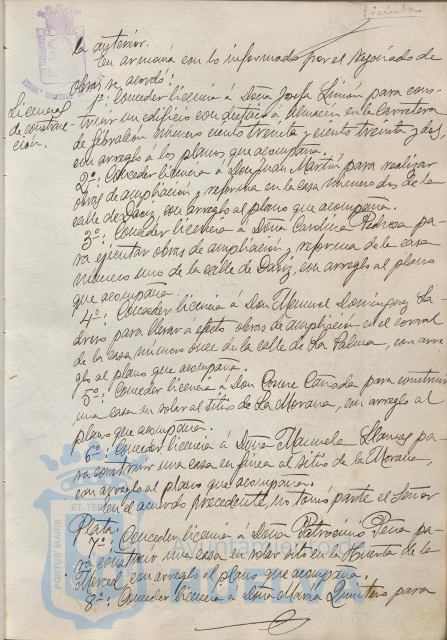 treinta
la anterior.
En armonía con lo informado por el Negociado de
obras se acordó:
Licencias
de construc-
ción.
1º: Conceder licencia á Doña Josefa Limón para cons-
truir un edificio con destino á almacén en la carretera
de Gibraleón número ciento treinta y ciento treinta y dos,
con arreglo á los planos que acompaña.
2º: Conceder licencia á Don Juan Martín para realizar
obras de ampliación y reforma en la casa número dos de la
calle de Daoiz, con arreglo al plano que acompaña.
3º: Conceder licencia á Doña Carolina Pedrosa pa-
ra ejecutar obras de ampliación y reforma de la casa
número uno de la calle de Daoiz, con arreglo al plano
que acompaña.
4º: Conceder licencia á Don Manuel Domínguez La
drero para llevar a efecto obras de ampliación en el corral
de la casa número once de la calle de La Palma, con arre
glo al plano que acompaña.
5º: Conceder licencia á Don Cosme Cañada para construir
una casa en solar al sitio de La Morana, con arreglo al
plano que acompaña.
6º: Conceder licencia á Doña Manuela Llamas pa-
ra construir una casa en finca al sitio de la Morana,
con arreglo al plano que acompaña.
En el acuerdo precedente, no tomó parte el Señor
Plata.
7º: Conceder licencia á Doña Patrocinio Peña pa-
ra construir una casa en solar sito en la Huerta de la
Merced, con arreglo al plano que acompaña.
8º: Conceder licencia á Doña María Quintero para
PORTUS MARIS ET TER